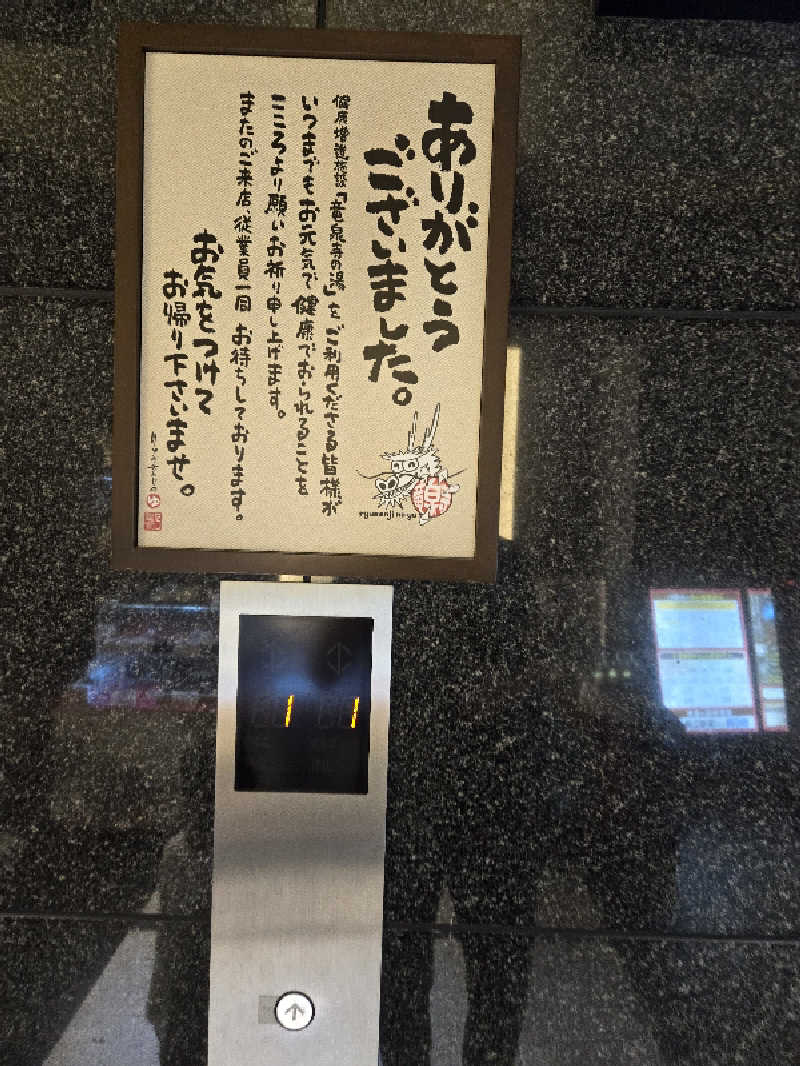 ありがとう
ございました。
健康増進施設「竜泉寺の湯」をご利用くださる皆様が
いつまでもお元気で健康でおられることを
こころより願いお祈り申し上げます。
またのご来店、従業員一同 お待ちしております。
お気をつけて
お帰り下さいませ。
ryusenjinoyu
1 1